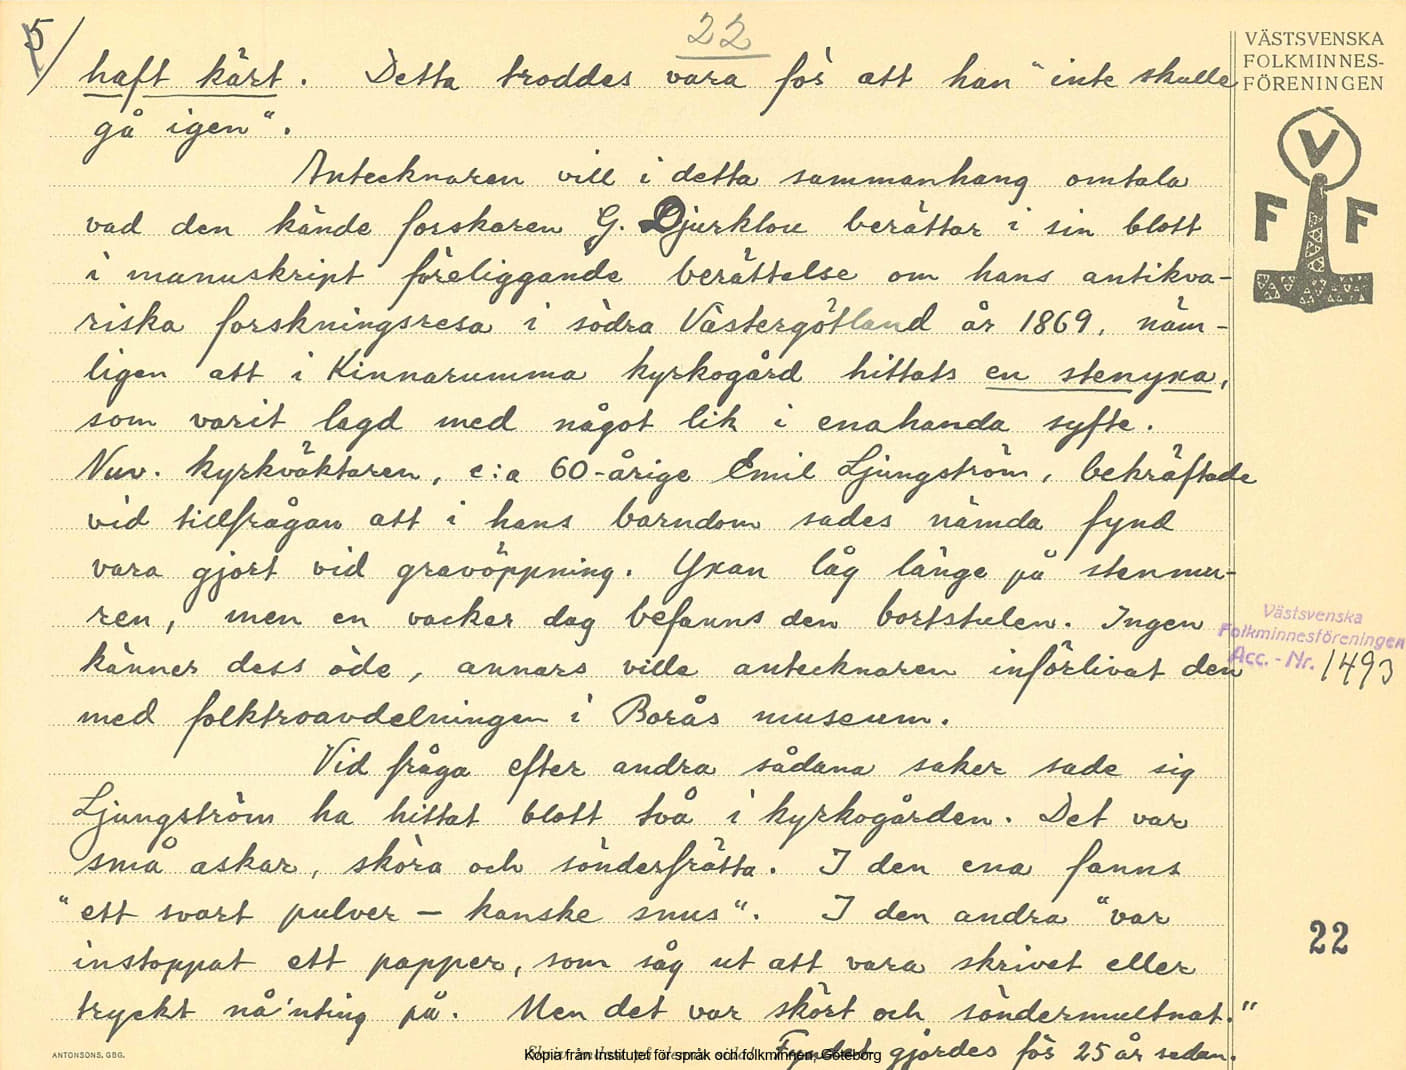 5
22
haft kärt. Detta troddes vara för att han "inte skulle
gå igen".
Antecknaren vill i detta sammanhang omtala
vad den kände forskaren G. Djurklou berättar i sin blott
i manuskript föreliggande berättelse om hans antikva-
riska forskningsresa i södra Västergötland år 1869, näm-
ligen att i Kinnarumma kyrkogård hittats en stenyxa,
som varit lagd med något lik i enahanda syfte.
Nuv. kyrkväktaren, c:a 60-årige Emil Ljungström, bekräftade
vid tillfrågan att i hans barndom sades nämda fynd
vara gjort vid gravöppning. Yxan låg länge på stenmu-
ren, men en vacker dag befanns den bortstulen. Ingen
känner dess öde, annars ville antecknaren införlivat den
med folktroavdelningen i Borås museum.
Vid fråga efter andra sådana saker sade sig
Ljungström ha hittat blott två i kyrkogården. Det var
små askar, sköra och sönderfrätta. I den ena fanns
"ett svart pulver – kanske snus". I den andra "var
instoppat ett papper, som såg ut att vara skrivet eller
tryckt nå'nting på. Men det var skört och söndermultnat."
Fyndet gjordes för 25 år sedan.
VÄSTSVENSKA
FOLKMINNES-
FÖRENINGEN
V
F F
Västsvenska
Folkminnesföreningen
Acc.-Nr. 1493
22
ANTONSONS, GBG.
Kopia från Institutet för språk och folkminnen, Göteborg